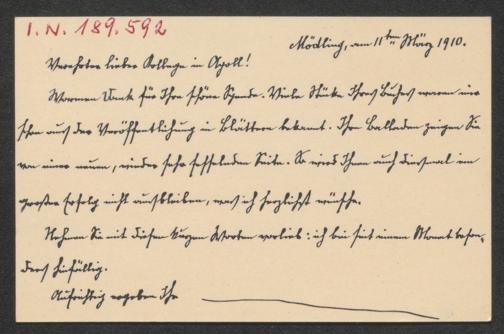 I.N. 189.592
Mödling, am 11ten März 1910.
Verehrter lieber Kollege in Apoll!
Warmen Dank für Ihre schöne Spende. Viele Stücke Ihres Buches waren mir
schon aus der Veröffentlichung in Blättern bekannt. Ihre Balladen zeigen Sie
von einer neuen, wieder sehr fesselnden Seite. So wird Ihnen auch diesmal ein
großer Erfolg nicht ausbleiben, was ich herzlichst wünsche.
Nehmen Sie mit diesen kurzen Worten vorlieb: ich bin seit einem Monat beson-
ders hinfällig.
Aufrichtig ergeben Ihr